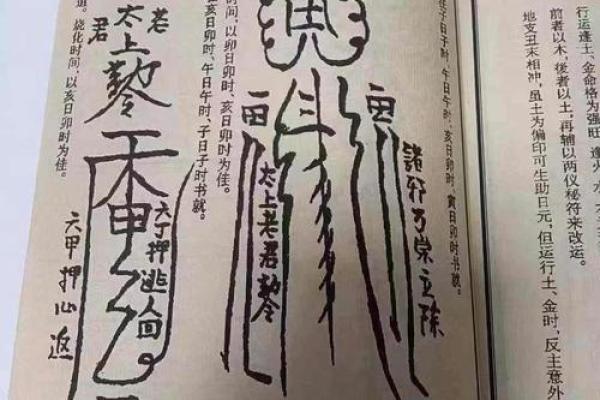 行运逢土、金命格为强旺，逢火、水、
前者以木，後者以土，再辅以两仪秘符来改运。
地支丑未相冲，虽土为偏印可生助日元，但运行土、金时，反主意外
子日子时、午日午时、亥日卯时、寅日卯时书就。
諸邪万祟立除
太上老君勅令
时间，以卯日卯时、亥日卯时为佳。
以亥日卯时、午日午时、子日子时书就。
太上老君勅令
六丁押逃回
六甲押心返
烧化时间，以亥日卯时为佳。